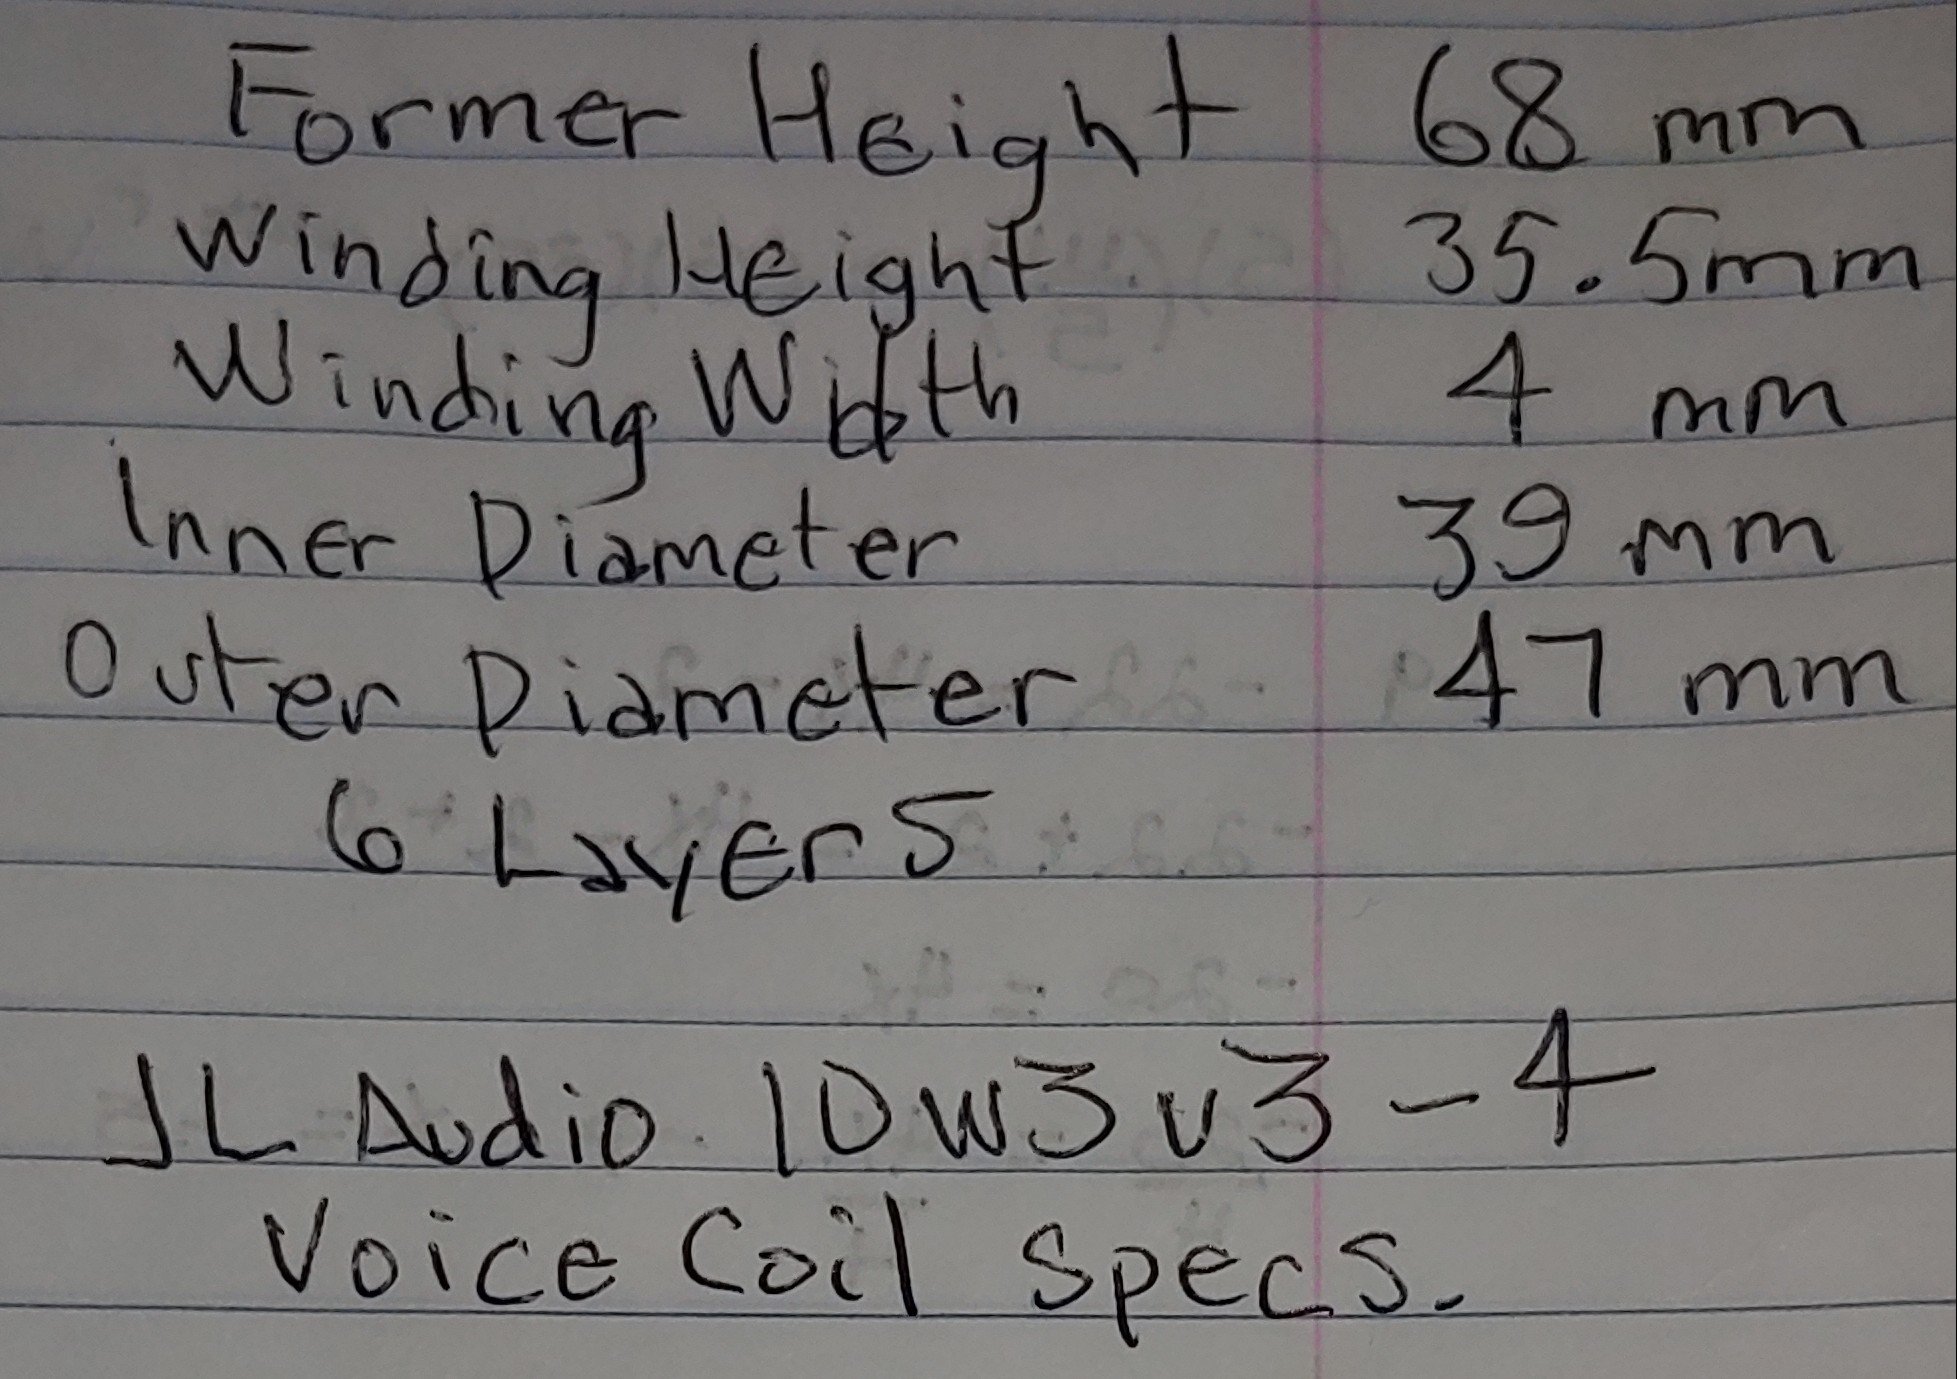 Former Height 68 mm
Winding Height 35.5mm
Winding Width 4 mm
Inner Diameter 39 mm
Outer Diameter 47 mm
6 Layers
JL Audio 10w3v3-4
Voice Coil Specs.